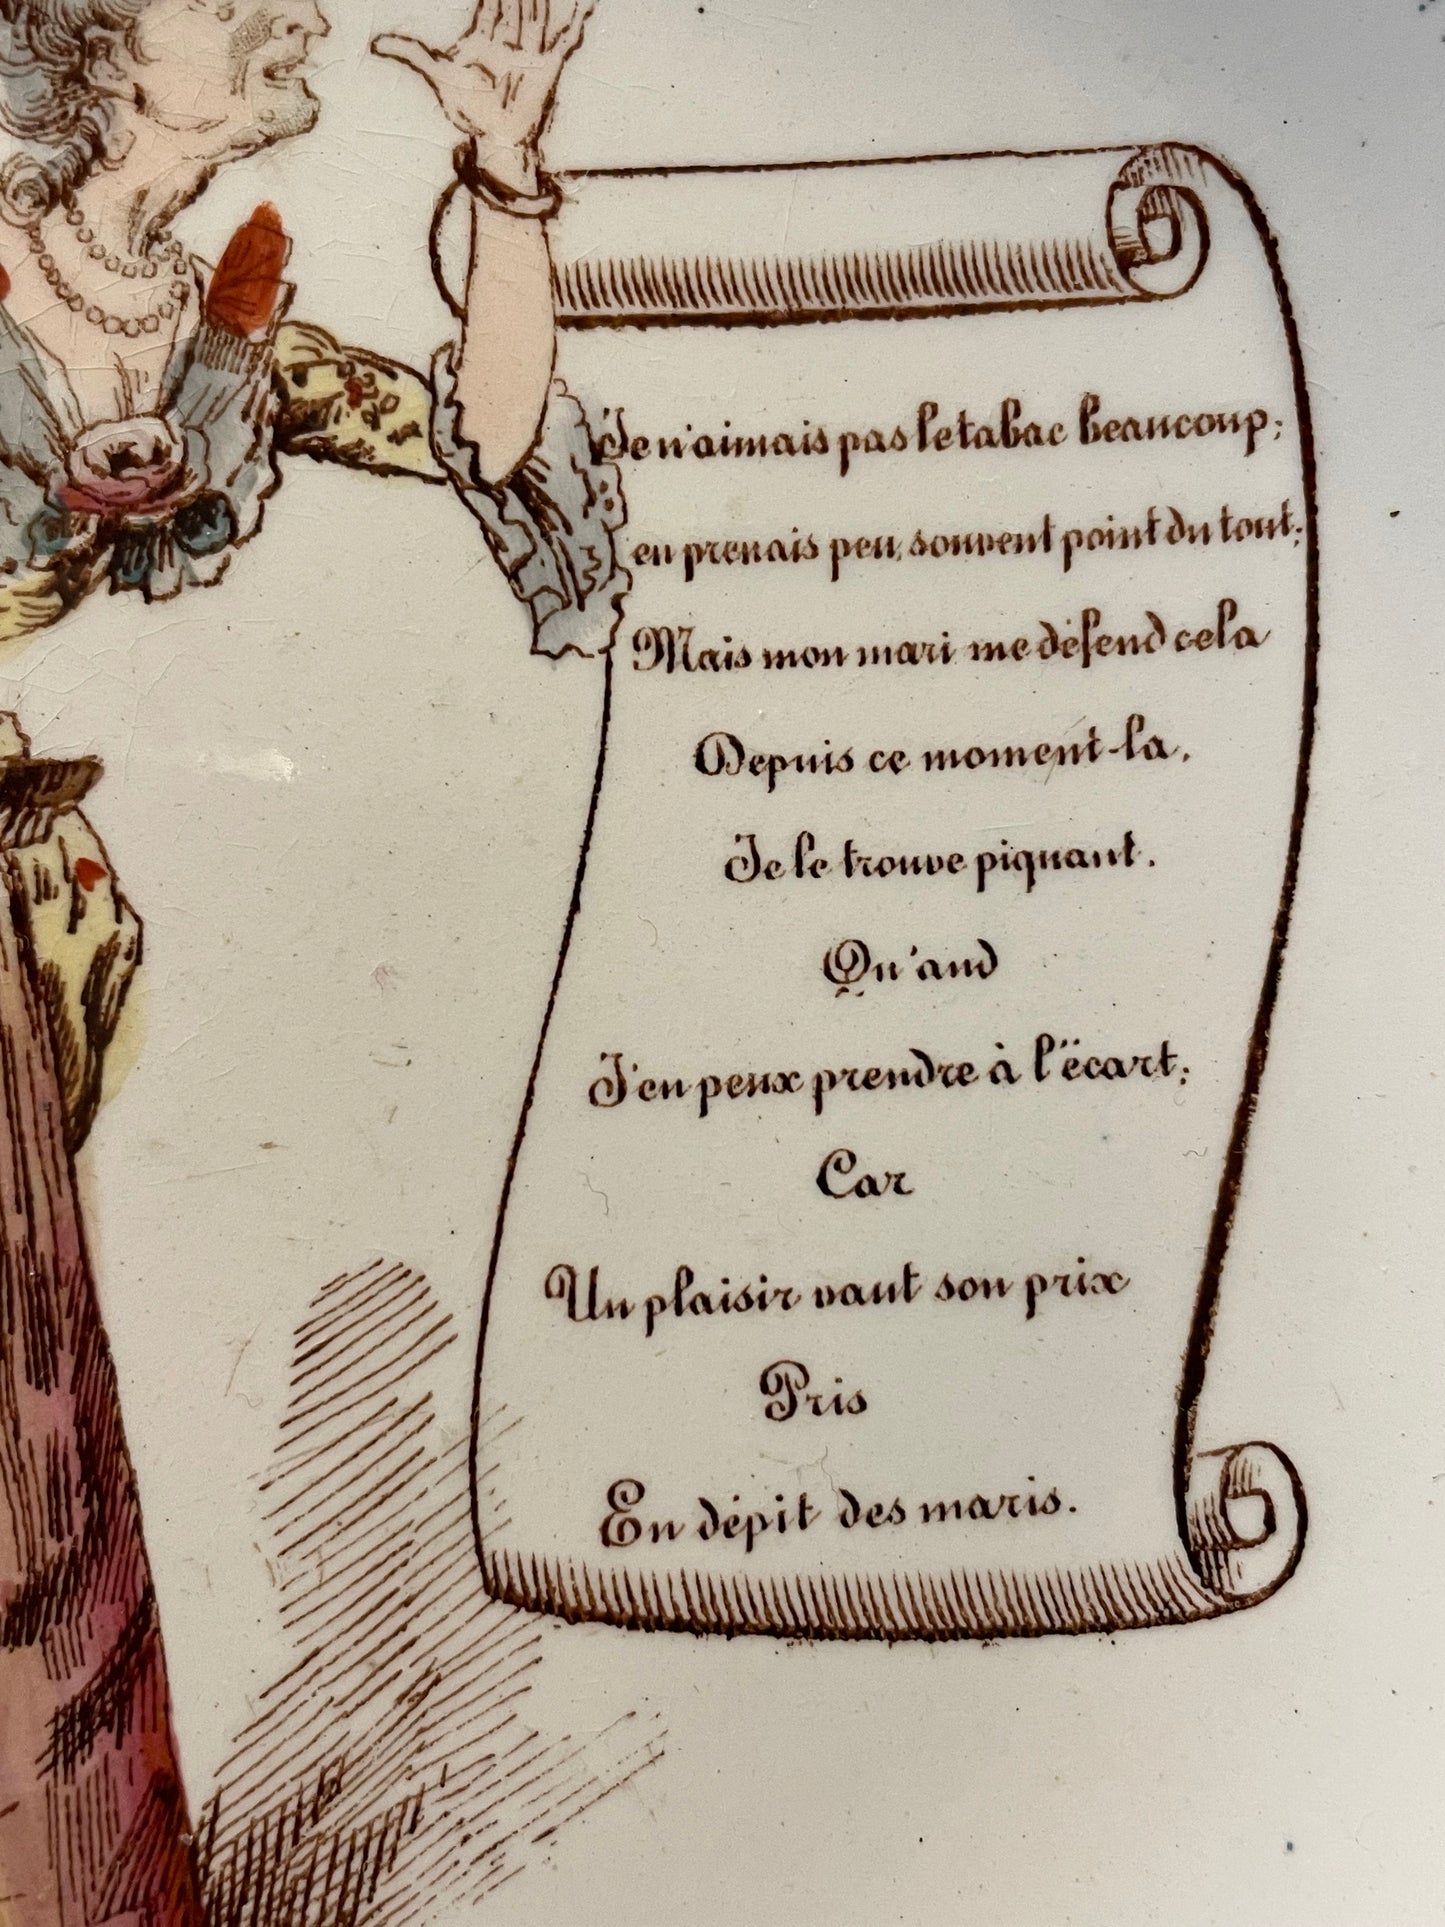 Je n'aimais pas le tabac beaucoup;
en prenais peu, souvent point du tout;
Mais mon mari me défend cela
Depuis ce moment-la.
Je le trouve piquant.
Qu'and
J'en peux prendre à l'ëcart;
Car
Un plaisir vaut son prix
Pris
En dépit des maris.